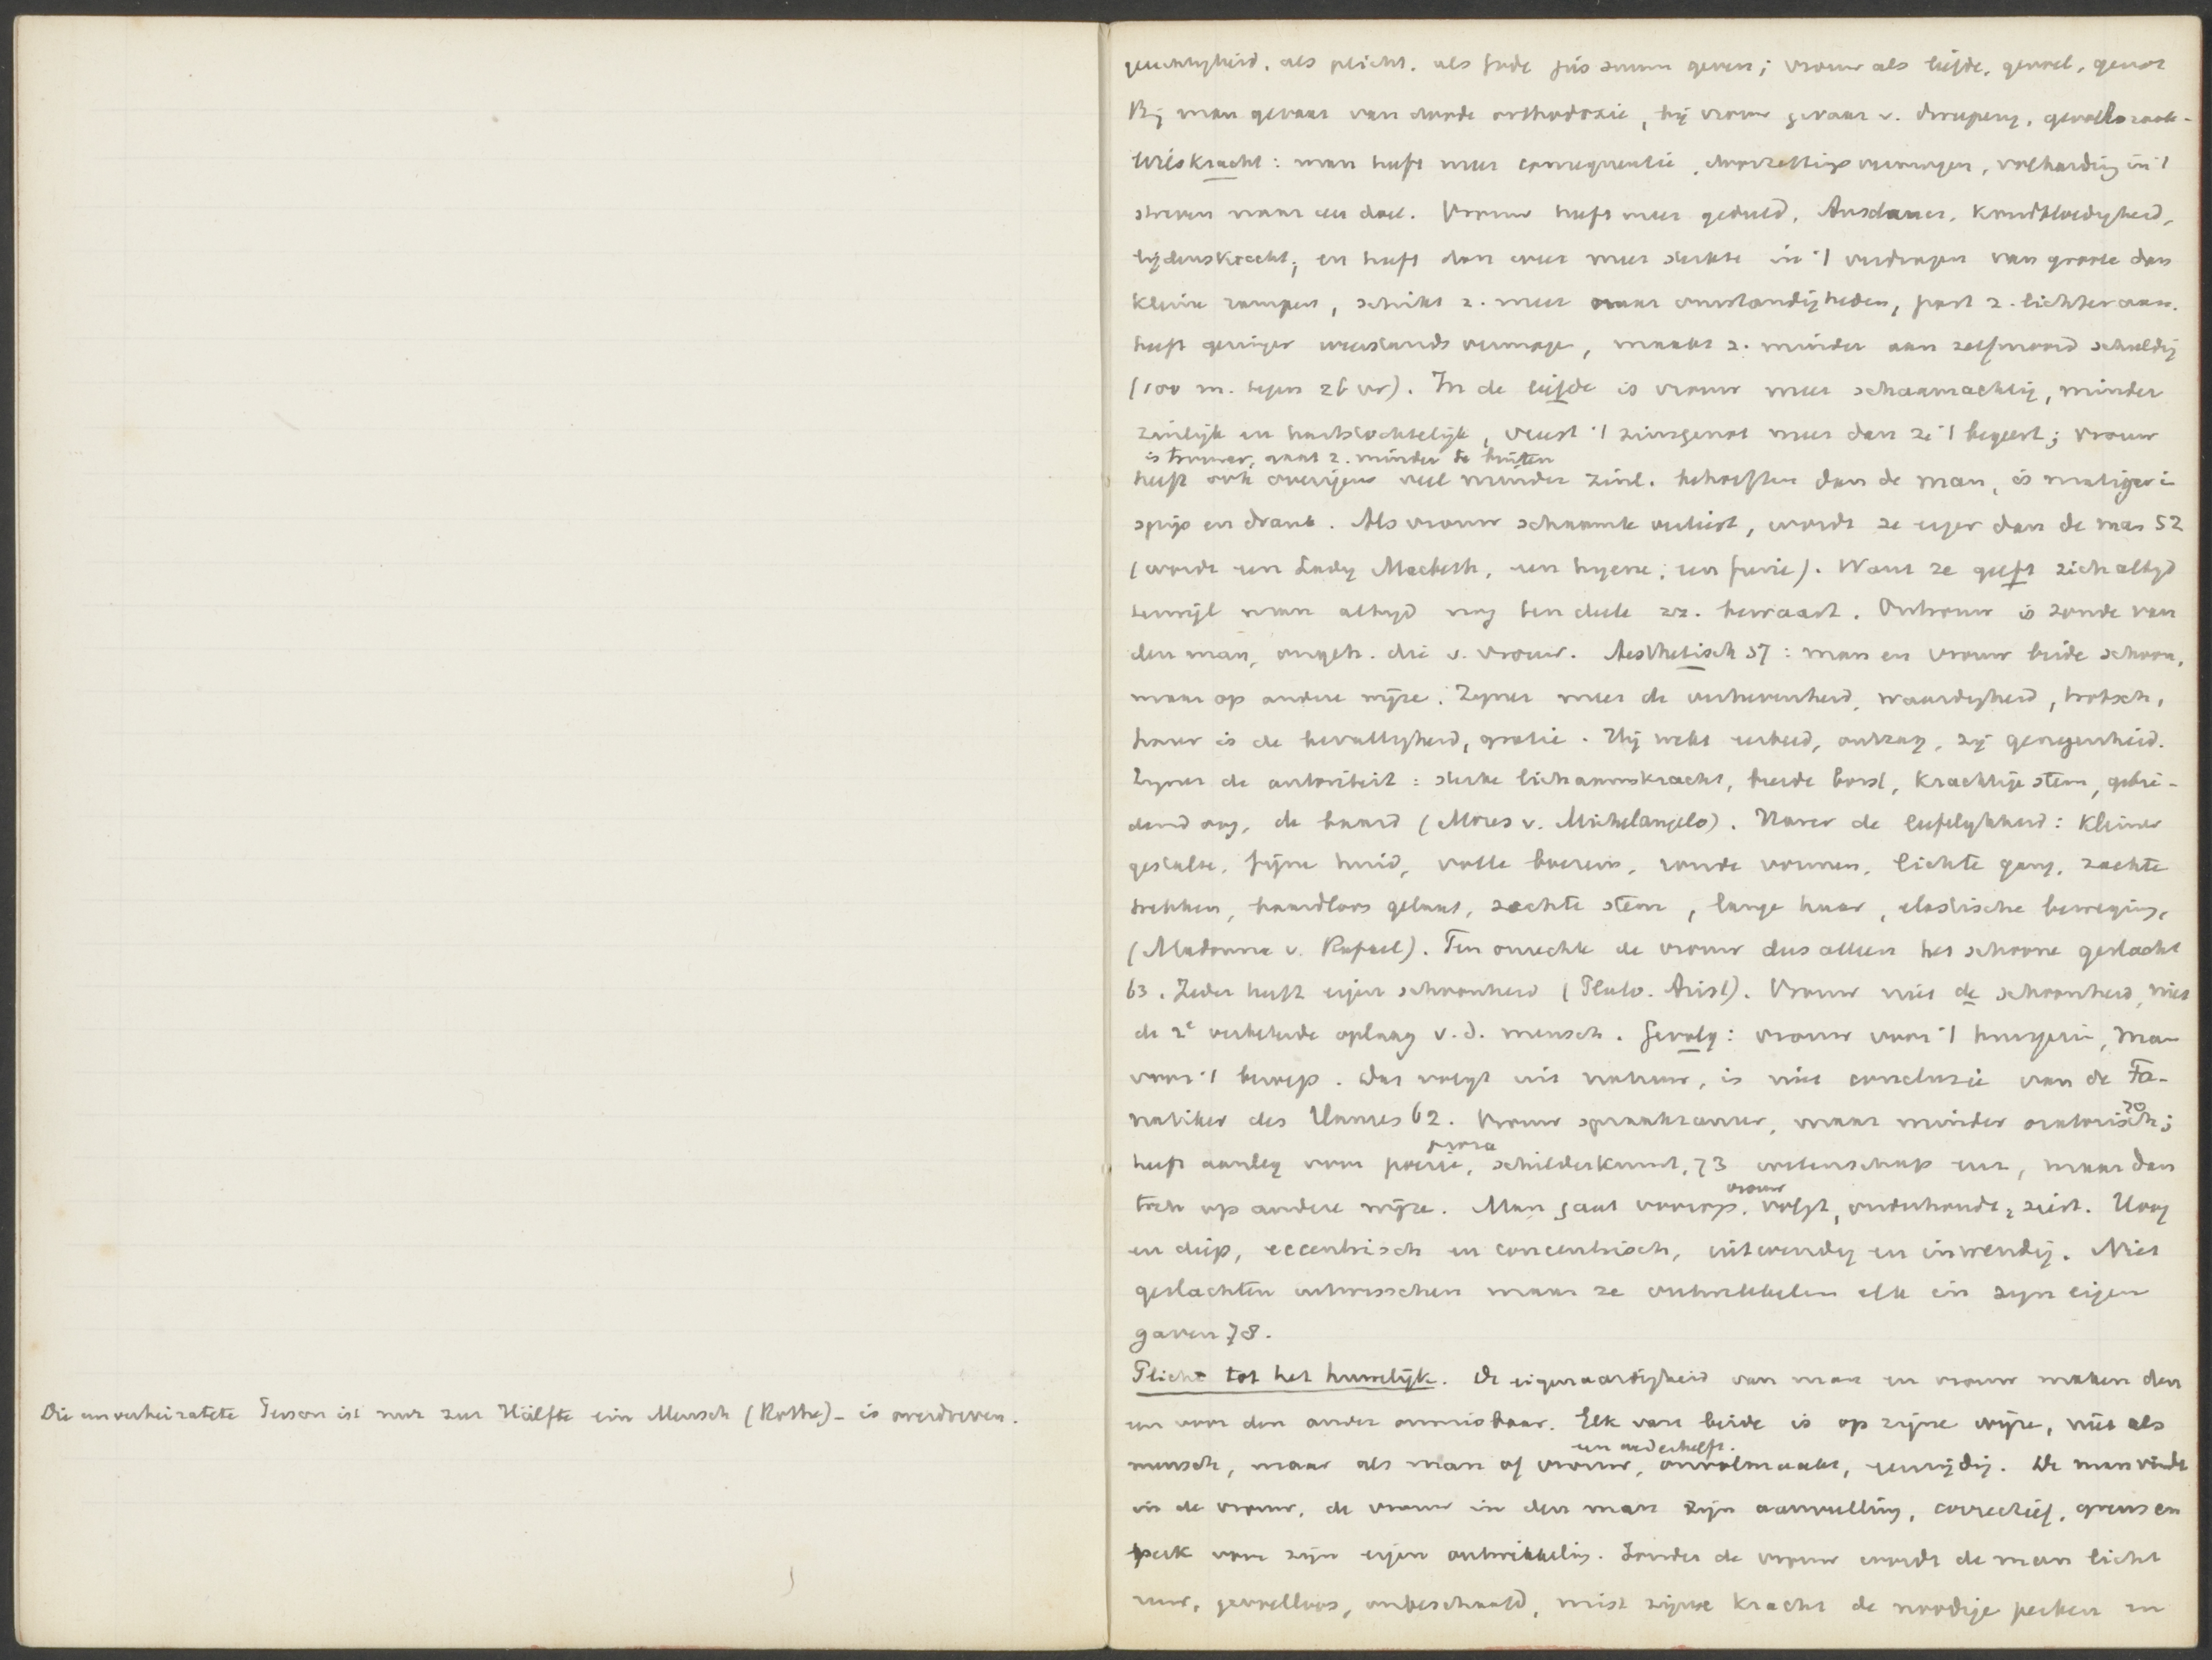 Die unverheiratete Person ist nur zur Hälfte ein Mensch (Rothe) - is overdreven.
gerechtigheid, als plicht, als Gode jus suum geven; vrouw als liefde, gevoel, genot
Bij man gevaar van doode orthodoxie, bij vrouw gevaar v. dweperij, gevoelszaak-
Wilskracht: man heeft meer consequentie, doorzettingsvermogen, volharding in 't
streven naar een doel. Vrouw heeft meer geduld, Ausdauer, koudbloedigheid,
lijdenskracht; en heeft dan weer meer sterkte in 't verdragen van groote dan
kleine rampen, schikt z. meer naar omstandigheden, past z. lichter aan.
heeft geringer weerstandsvermogen, maakt z. minder aan zelfmoord schuldig
(100 m. tegen 26 vr). In de liefde is vrouw meer schaamachtig, minder
zinlijk en hartstochtelijk, vreest 't zingenot meer dan ze 't begeert; vrouw
is trouwer, gaat z. minder te buiten
heeft ook overigens veel minder zinl. behoeften dan de man, is matiger in
spijs en drank. Als vrouw schaamte verliest, wordt ze erger dan de man 52
(wordt een Lady Macbeth, een hyene, een furie). Want ze geeft zich altijd
terwijl man altijd nog ten deele zz. bewaart. Ontrouw is zonde van
den man, ongeh. die v. vrouw. Aesthetisch 57: man en vrouw beide schoon,
maar op andere wijze. Zijner meer de verhevenheid, waardigheid, trotsch,
harer is de bevalligheid, gratie. Hij wekt eerbied, ontzag, zij genegenheid.
Zijner de autoriteit: sterke lichaamskracht, breede borst, krachtige stem, gebie-
dend oog, de baard (Mozes v. Michelangelo). Harer de liefelijkheid: kleiner
gestalte, fijne huid, volle boezem, ronde vormen, lichte gang, zachte
trekken, baardloos gelaat, zachte stem, lange haar, elastische beweging,
(Madonna v. Rafael). Ten onrechte de vrouw dus alleen het schoone geslacht
63. Ieder heeft eigen schoonheid (Plato. Arist). Vrouw niet de schoonheid, niet
de 2e verbeterde oplaag v.d. mensch. Gevolg: vrouw voor 't huisgezin, man
voor 't beroep. Dat volgt uit natuur, is niet conclusie van de Fa-
natiker des Hauses 62. Vrouw spraakzamer, maar minder oratorisch 70;
heeft aanleg voor poezie, proza schilderkunst, 73 wetenschap enz, maar dan
toch op andere wijze. Man gaat voorop, vrouw volgt, onderhoudt, ziert. Hoog
en diep, eccentrisch en concentrisch, uitwendig en inwendig. Niet
geslachten uitwisschen maar ze ontwikkelen elk in zijn eigen
gaven 78.
Plicht tot het huwelijk. De eigenaardigheid van man en vrouw maken den
een voor den ander onmisbaar. Elk van beide is op zijne wijze, niet als
mensch, maar als man of vrouw, een wederhelft. onvolmaakt, eenzijdig. De man vindt
in de vrouw, de vrouw in den man zijn aanvulling, correctief, grens en
perk voor zijn eigen ontwikkeling. Zonder de vrouw wordt de man licht
ruw, gevoelloos, onbeschaafd, mist zijne kracht de noodige perken en